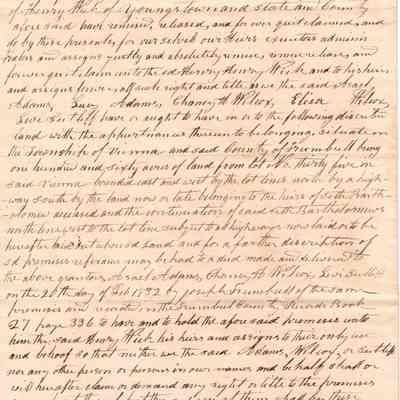 of Henry Wick of Youngstown and state and County
afore said have remised, released, and for ever quit claimed, and
do by these presents for ourselves our Heirs executors adminis
trators and assigns justly and absolutely remise, release and
forever quit claim unto the sd Henry Wick and to his heirs
and assigns forever, all such right and title as we the said Asael
Adams, Lucy Adams, Chancy H Wilcox, Eliza Wilcox,
Levi Sutliff have or ought to have in or to the following described
land with the appurtenances thereunto belonging, situate on
the Township of Vienna and said County of Trumbull being
one hundred and sixty acres of land from lot No. thirty five in
said Vienna bounded east and west by the lot lines north by a high-
way south by the land now or late belonging to the heirs of Seth Barth-
olomew deceased and the continuation of said Seth Bartholomew's
north line west to the lot line subject to a highway now laid or to be
hereafter laid out across sd Land and for a farther description of
sd premises reference may be had to a deed made and delivered to
the above grantors, Asael Adams, Chancy H Wilcox, Levi Sutliff
on the 20th day of Feb 1832 by Joseph Trumbull of the same
premises and records in the Trumbull County Records Book
27 page 336 to have and to hold the afore said premises unto
him the said Henry Wick his heirs and assigns to their only use
and behoof so that neither we the said Adams, Wilcox, or Sutliff
nor any other person or persons in our names and behalf shall or
will hereafter claim or demand any right or title to the premises